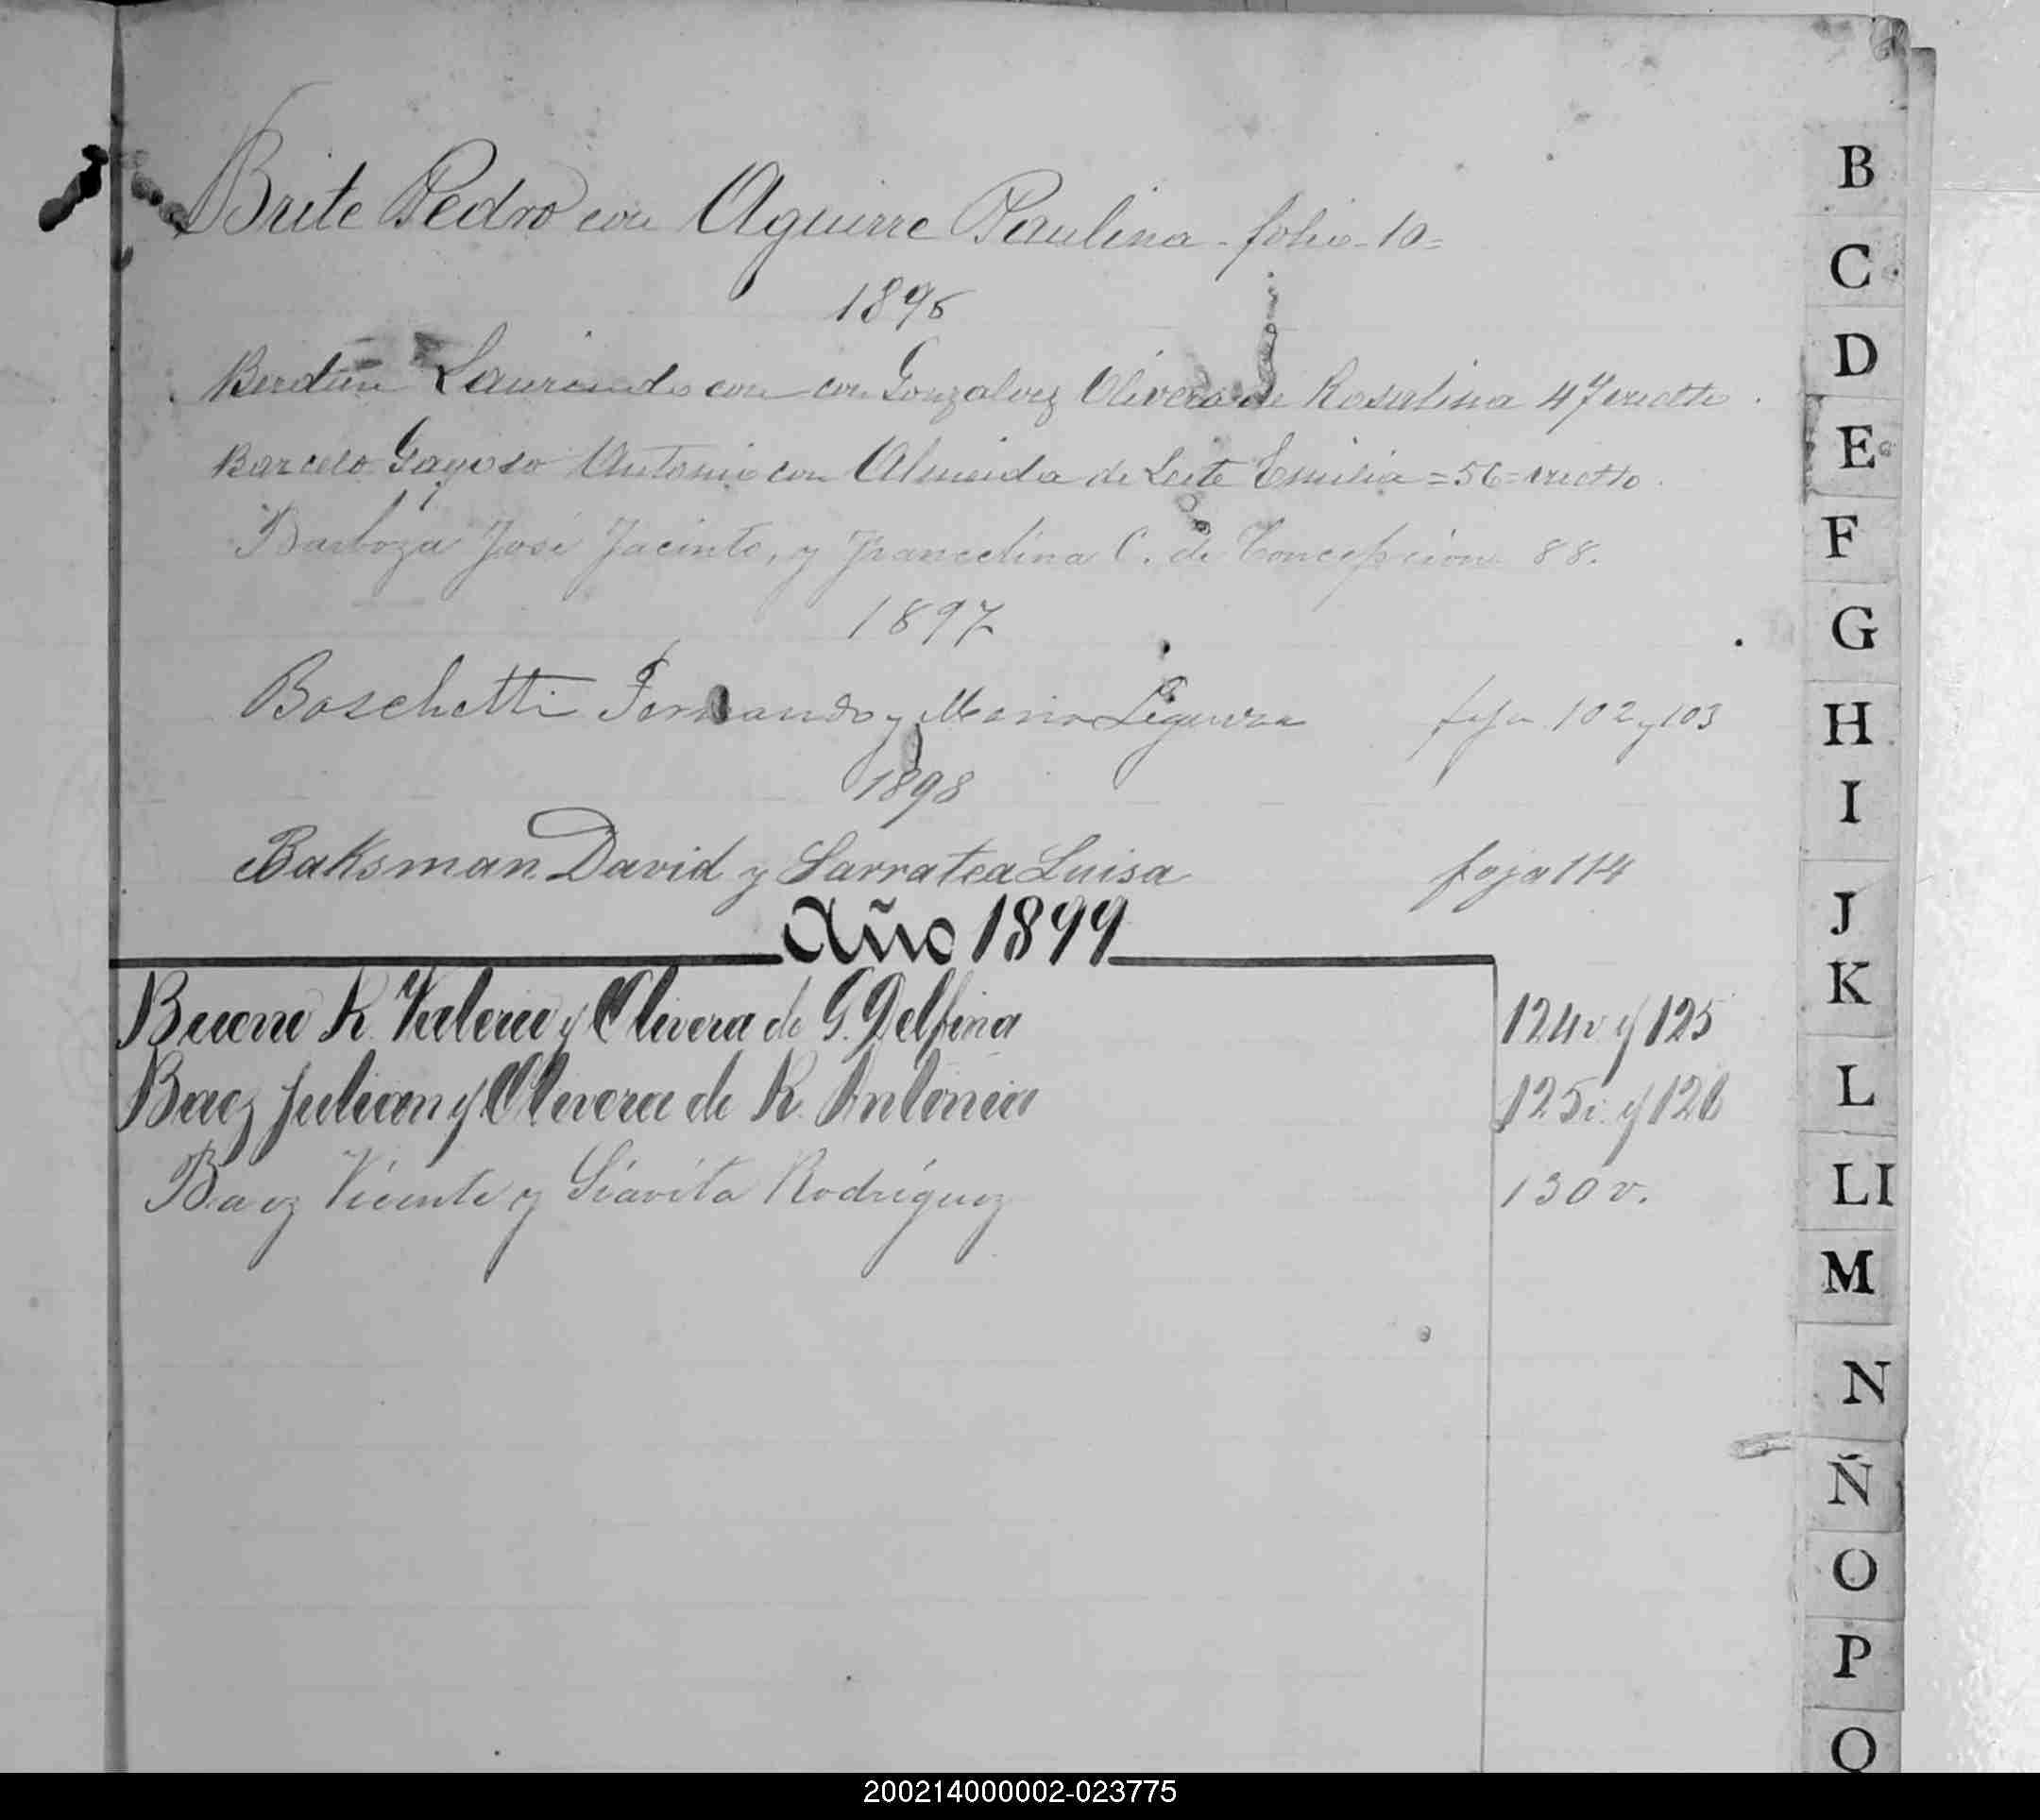 Brite Pedro con Aguirre Paulina - folio - 10 =
1896
Berdun Laurindo con con Gonzalvez Olivera de Rosalina 47 vuelto
Barcelo Gayoso Antonio con Almeida de Leite Emilia = 56 = vuelto.
Barboza José Jacinto, y Francelina C. de Concepcion 88.
1897
Boschetti Fernando y Maria Leguiza foja 102 y 103
1898
Baksman David y Sarratea Luisa foja 114
Año 1899
Bueno R. Valerio y Olivera de G. Delfina 124v y 125
Baez Julian y Olivera de R. Antonia 125v. y 126
Baez Vicente y Rodriguez 130 v.
B
C
D
E
F
G
H
I
J
K
L
Ll
M
N
Ñ
O
P
Q
200214000002-023775